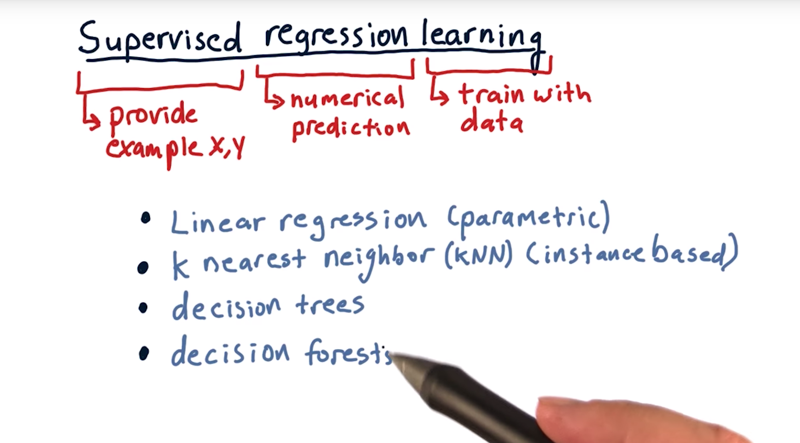 Supervised regression learning
provide
example X,Y
numerical
prediction
train with
data
• Linear regression (parametric)
• k nearest neighbor (kNN) (instance based)
• decision trees
• decision forests